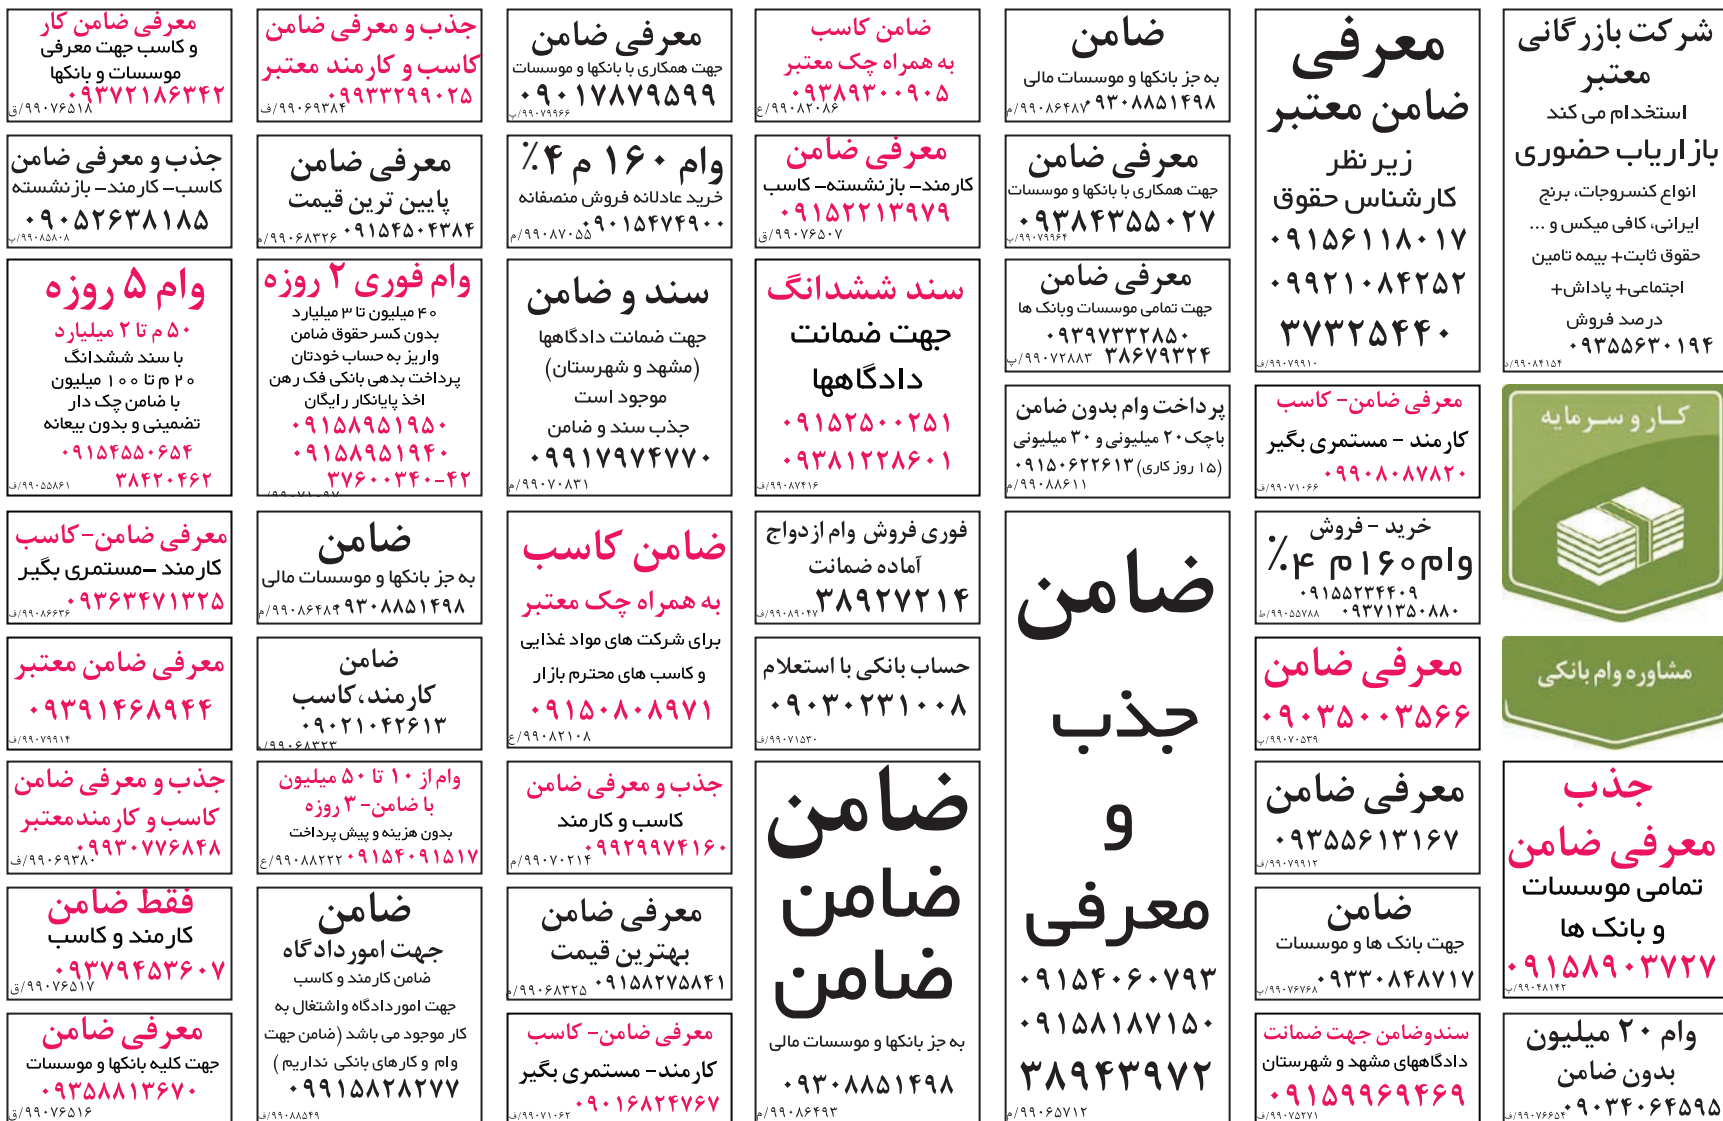 شرکت بازرگانی
معتبر
استخدام می کند
بازاریاب حضوری
انواع کنسروجات، برنج
ایرانی، کافی میکس و ...
حقوق ثابت+ بیمه تامین
اجتماعی+ پاداش+
درصد فروش
۰۹۳۵۵۶۳۰۱۹۴
۹۹۰۸۴۱۵۴/د
کـار و سـرمایه
مشاوره وام بانکی
جذب
معرفی ضامن
تمامی موسسات
و بانک ها
۰۹۱۵۸۹۰۳۷۲۷
۹۹۰۴۸۱۴۲/پ
وام ۲۰ میلیون
بدون ضامن
۰۹۰۳۴۰۶۴۵۹۵
۹۹۰۷۶۶۵۴/ف
معرفی
ضامن معتبر
زیر نظر
کارشناس حقوق
۰۹۱۵۶۱۱۸۰۱۷
۰۹۹۲۱۰۸۴۲۵۲
۳۷۳۲۵۴۴۰
۹۹۰۷۹۹۱۰/ف
معرفی ضامن- کاسب
کارمند - مستمری بگیر
۰۹۹۰۸۰۸۷۸۲۰
۹۹۰۷۱۰۶۶/ف
خرید - فروش
وام۱۶۰م ۴٪
۰۹۱۵۵۲۳۴۴۰۹
۰۹۳۷۱۳۵۰۸۸۰
۹۹۰۵۵۷۸۸/ط
معرفی ضامن
۰۹۰۳۵۰۰۳۵۶۶
۹۹۰۷۰۵۳۹/پ
معرفی ضامن
۰۹۳۵۵۶۱۳۱۶۷
۹۹۰۷۹۹۱۲/ف
ضامن
جهت بانک ها و موسسات
۰۹۳۳۰۸۴۸۷۱۷
۹۹۰۷۶۷۶۸/پ
سندوضامن جهت ضمانت
دادگاههای مشهد و شهرستان
۰۹۱۵۹۹۶۹۴۶۹
۹۹۰۷۵۲۷۱/ف
ضامن
به جز بانکها و موسسات مالی
۰۹۳۰۸۸۵۱۴۹۸
۹۹۰۸۶۴۸۷/م
معرفی ضامن
جهت همکاری با بانکها و موسسات
۰۹۳۸۴۳۵۵۰۲۷
۹۹۰۷۹۹۶۴/پ
معرفی ضامن
جهت تمامی موسسات وبانک ها
۰۹۳۹۷۳۳۲۸۵۰
۳۸۶۷۹۳۲۴
۹۹۰۷۲۸۸۳/پ
پرداخت وام بدون ضامن
باچک۲۰ میلیونی و ۳۰ میلیونی
(۱۵ روز کاری) ۰۹۱۵۰۶۲۲۶۱۳
۹۹۰۸۸۶۱۱/م
ضامن
جذب
و
معرفی
۰۹۱۵۴۰۶۰۷۹۳
۰۹۱۵۸۱۸۷۱۵۰
۳۸۹۴۳۹۷۲
۹۹۰۶۵۷۱۲/م
ضامن کاسب
به همراه چک معتبر
۰۹۳۸۹۳۰۰۹۰۵
۹۹۰۸۲۰۸۶/ع
معرفی ضامن
کارمند- بازنشسته- کاسب
۰۹۱۵۲۲۱۳۹۷۹
۹۹۰۷۶۵۰۷/ق
سند ششدانگ
جهت ضمانت
دادگاهها
۰۹۱۵۲۵۰۰۲۵۱
۰۹۳۸۱۲۲۸۶۰۱
۹۹۰۸۷۴۱۶/ف
فوری فروش وام ازدواج
آماده ضمانت
۳۸۹۲۷۲۱۴
۹۹۰۸۹۰۴۷/ف
حساب بانکی با استعلام
۰۹۰۳۰۲۳۱۰۰۸
۹۹۰۷۱۵۳۰/ف
ضامن
ضامن
ضامن
به جز بانکها و موسسات مالی
۰۹۳۰۸۸۵۱۴۹۸
۹۹۰۸۶۴۹۳/م
معرفی ضامن
جهت همکاری با بانکها و موسسات
۰۹۰۱۷۸۷۹۵۹۹
۹۹۰۷۹۹۶۶/پ
وام ۱۶۰ م ۴٪
خرید عادلانه فروش منصفانه
۰۹۰۱۵۴۷۴۹۰۰
۹۹۰۸۷۰۵۵/م
سند و ضامن
جهت ضمانت دادگاهها
(مشهد و شهرستان)
موجود است
جذب سند و ضامن
۰۹۹۱۷۹۷۴۷۷۰
۹۹۰۷۰۸۳۱/م
ضامن کاسب
به همراه چک معتبر
برای شرکت های مواد غذایی
و کاسب های محترم بازار
۰۹۱۵۰۸۰۸۹۷۱
۹۹۰۸۲۱۰۸/ع
جذب و معرفی ضامن
کاسب و کارمند
۰۹۹۲۹۹۷۴۱۶۰
۹۹۰۷۰۲۱۴/م
معرفی ضامن
بهترین قیمت
۰۹۱۵۸۲۷۵۸۴۱
۹۹۰۶۸۳۲۵/م
معرفی ضامن- کاسب
کارمند- مستمری بگیر
۰۹۰۱۶۸۲۴۷۶۷
۹۹۰۷۱۰۶۲/ف
جذب و معرفی ضامن
کاسب و کارمند معتبر
۰۹۹۳۳۲۹۹۰۲۵
۹۹۰۶۹۳۸۴/ف
معرفی ضامن
پایین ترین قیمت
۰۹۱۵۴۵۰۴۳۸۴
۹۹۰۶۸۳۲۶/م
وام فوری ۲ روزه
۴۰ میلیون تا ۳ میلیارد
بدون کسر حقوق ضامن
واریز به حساب خودتان
پرداخت بدهی بانکی فک رهن
اخذ پایانکار رایگان
۰۹۱۵۸۹۵۱۹۵۰
۰۹۱۵۸۹۵۱۹۴۰
۳۷۶۰۰۳۴۰-۴۲
ضامن
به جز بانکها و موسسات مالی
۰۹۳۰۸۸۵۱۴۹۸
ضامن
کارمند، کاسب
۰۹۰۲۱۰۴۲۶۱۳
۹۹۰۶۸۳۲۳/م
وام از ۱۰ تا ۵۰ میلیون
با ضامن- ۳ روزه
بدون هزینه و پیش پرداخت
۰۹۱۵۴۰۹۱۵۱۷
۹۹۰۸۸۲۲۲/ع
ضامن
جهت امور دادگاه
ضامن کارمند و کاسب
جهت اموردادگاه واشتغال به
کار موجود می باشد (ضامن جهت
وام و کارهای بانکی نداریم )
۰۹۹۱۵۸۲۸۲۷۷
۹۹۰۸۸۵۴۹/ف
معرفی ضامن کار
و کاسب جهت معرفی
موسسات و بانکها
۰۹۳۷۲۱۸۶۳۴۲
۹۹۰۷۶۵۱۸/ق
جذب و معرفی ضامن
کاسب- کارمند- بازنشسته
۰۹۰۵۲۶۳۸۱۸۵
۹۹۰۸۵۸۰۸/پ
وام ۵ روزه
۵۰ م تا ۲ میلیارد
با سند ششدانگ
۲۰ م تا ۱۰۰ میلیون
با ضامن چک دار
تضمینی و بدون بیعانه
۰۹۱۵۴۵۵۰۶۵۴
۳۸۴۲۰۴۶۲
۹۹۰۵۵۸۶۱/ف
معرفی ضامن-کاسب
کارمند –مستمری بگیر
۰۹۳۶۳۴۷۱۳۲۵
۹۹۰۸۶۶۳۶/ف
معرفی ضامن معتبر
۰۹۳۹۱۴۶۸۹۴۴
۹۹۰۷۹۹۱۴/ف
جذب و معرفی ضامن
کاسب و کارمندمعتبر
۰۹۹۳۰۷۷۶۸۴۸
۹۹۰۶۹۳۸۰/ف
فقط ضامن
کارمند و کاسب
۰۹۳۷۹۴۵۳۶۰۷
۹۹۰۷۶۵۱۷/ق
معرفی ضامن
جهت کلیه بانکها و موسسات
۰۹۳۵۸۸۱۳۶۷۰
۹۹۰۷۶۵۱۶/ق